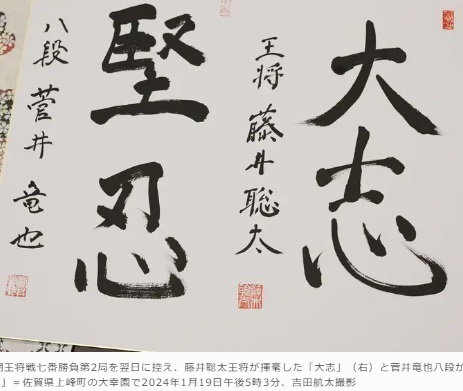 大志
王将 藤井聡太
堅忍
八段 菅井 竜也
王将戦七番勝負第2局を翌日に控え、藤井聡太王将が揮毫した「大志」（右）と菅井竜也八段が
」＝佐賀県上峰町の大幸園で2024年1月19日午後5時3分、吉田航太撮影